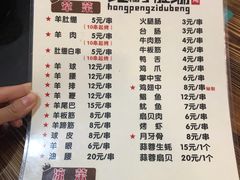 hongpengzidubeng
荤菜
羊肚绷 5元/串
(10串起烤)
羊肉 5元/串
(10串起烤)
肚绷白串 5元/串
羊球 12元/串
羊腰 12元/串
羊排 12元/串
羊尾巴 15元/串
羊板筋 6元/串
羊蹄筋 8元/串
球皮 8元/串
羊眼 6元/串
油腰 20元/串
火腿肠 6元/串
台肠 5元/串
脆骨 6元/串
牛肉 6元/串
牛油 6元/串
掌中宝 6元/串
鸡翅中 8元/串
鱿鱼 12元/串
鲳鱼 12元/串
牛板筋 6元/串
扇贝肉 6元/串
烤虾 6元/串
月牙骨 8元/串
蒜蓉生蚝 15元/个
蒜蓉扇贝 20元/个
蔬菜